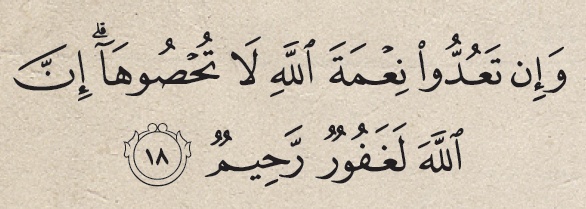 وَإِن تَعُدُّوا۟ نِعْمَةَ ٱللَّهِ لَا تُحْصُوهَآ ۗ إِنَّ
ٱللَّهَ لَغَفُورٌ رَّحِيمٌ ١٨